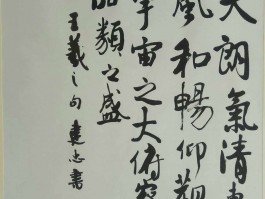 天朗氣清惠
風和暢仰觀
宇宙之大俯察
品類之盛
王羲之句 袁忠書